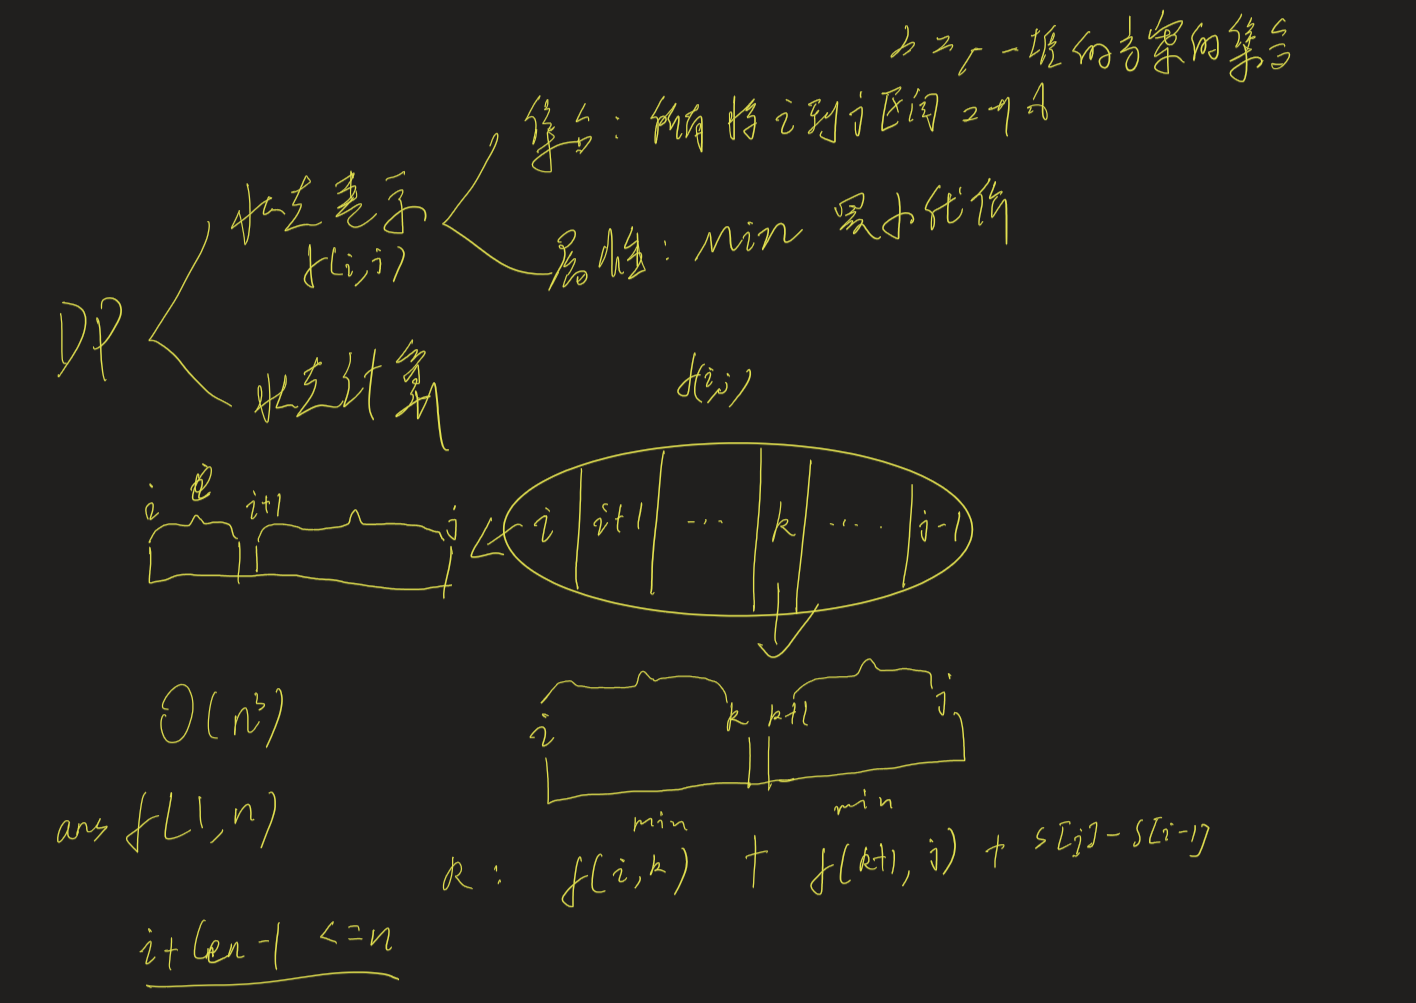 一堆的方案的集合
集合：所有将i到j区间合并
状态表示
f(i,j)
属性：min 最小代价
DP
状态计算
f(i,j)
i
i+1
j
i
i+1
...
k
....
j-1
i
k
k+1
j
O(n³)
ans f[1,n)
min
min
k: f(i,k) + f(k+1,j) + s[j]-s[i-1]
i+len-1 <=n